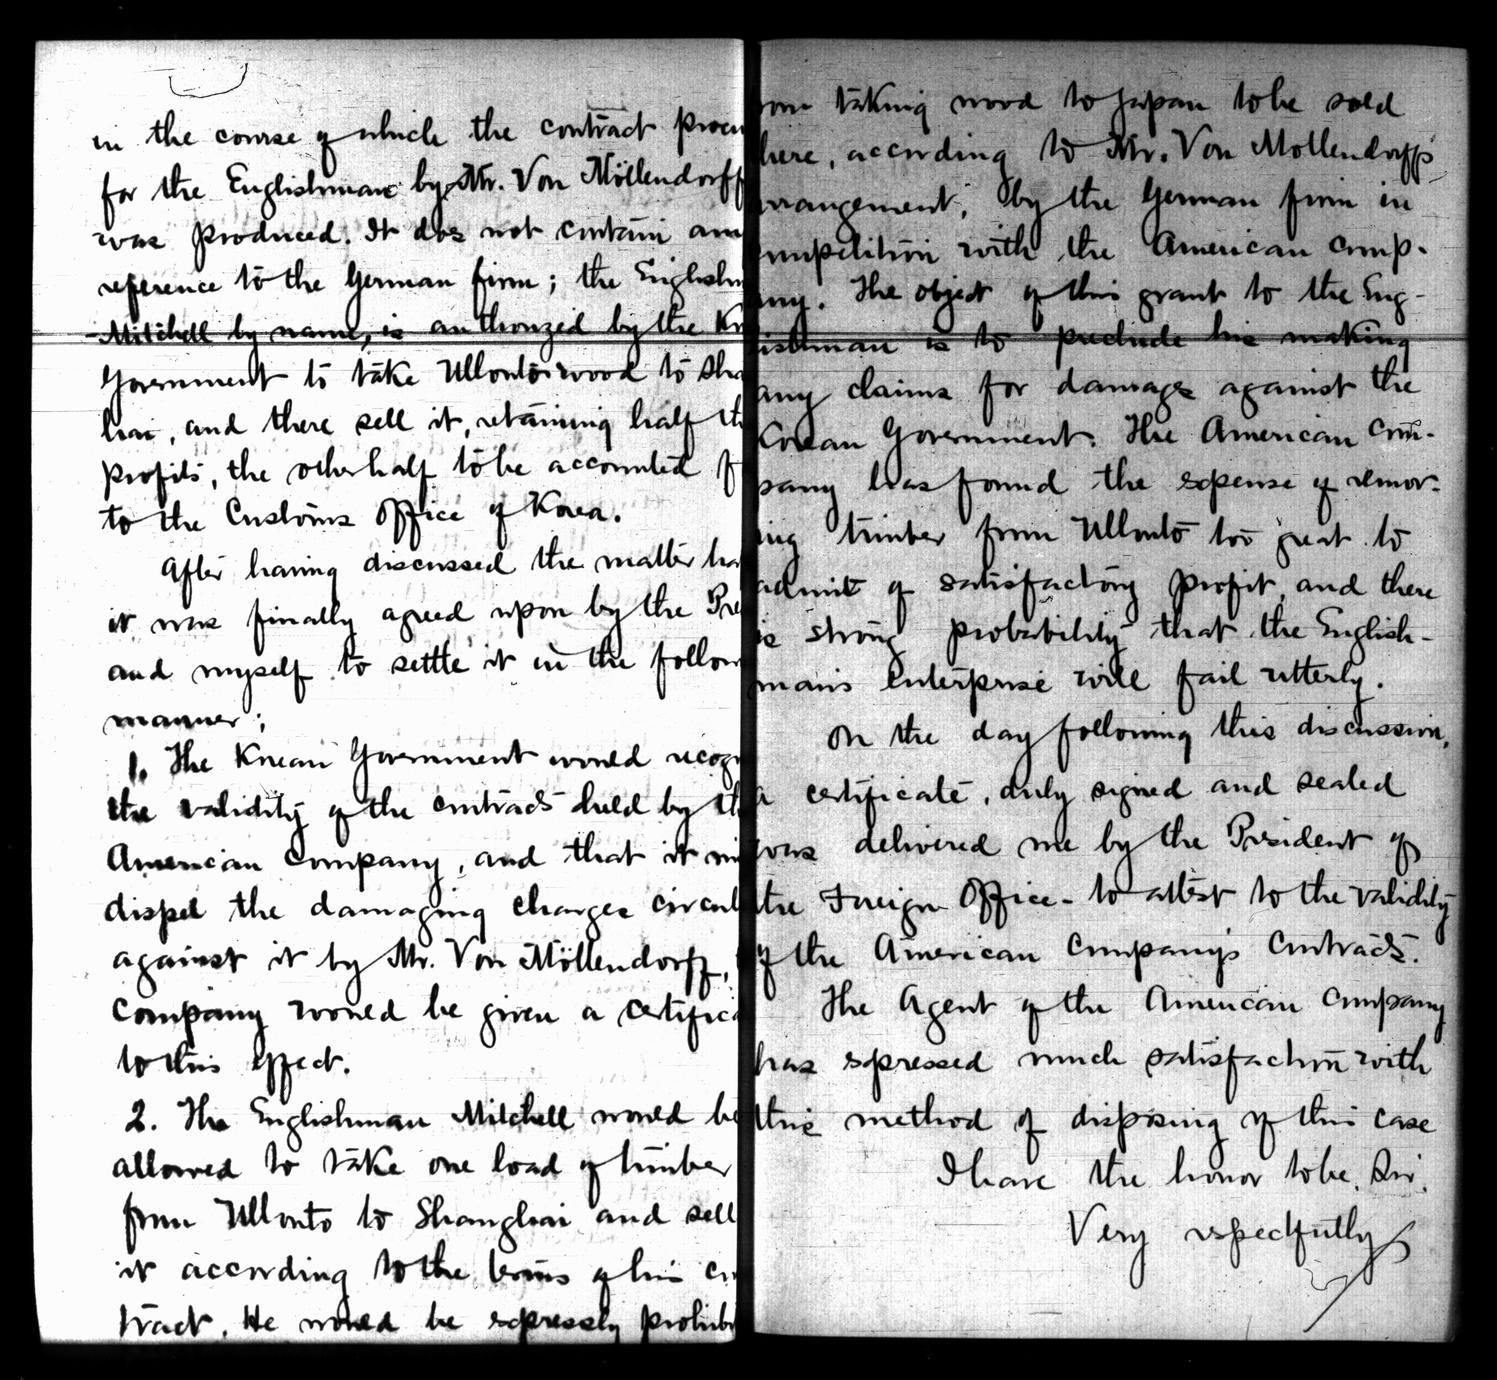 in the course of which the contract procu
for the Englishman by Mr. Von Möllendorff
was produced. It does not contain any
reference to the German firm; the Englishm
Mitchell by name, is authorized by the Ko
Government to take Ullonto wood to Sha
hai, and there sell it, retaining half th
profits, the other half to be accounted f
to the Customs Office of Korea.
After having discussed the matter ha
it was finally agreed upon by the Pre
and myself to settle it in the follow
manner;
1. The Korean Government would recog
the validity of the contract held by th
American Company, and that it mi
dispel the damaging charges circul
against it by Mr. Von Möllendorff,
Company would be given a certific
to this effect.
2. The Englishman Mitchell would be
allowed to take one load of timber
from Ullonto to Shanghai and sell
it according to the terms of his con
tract. He would be expressly prohib
rom taking wood to Japan to be sold
here, according to Mr. Von Mollendorff's
rrangement, by the German firm in
ompetition with the American Comp-
any. The object of this grant to the Eng-
lishman is to preclude his making
any claims for damages against the
Korean Government. The American Com-
pany has found the expense of remov-
ing timber from Ullonto too great to
admit of satisfactory profit, and there
is strong probability that the English-
man's enterprise will fail utterly.
On the day following this discussion,
a certificate, duly signed and sealed
was delivered me by the President of
the Foreign Office - to attest to the validity
of the American Company's Contract.
The Agent of the American Company
has expressed much satisfaction with
this method of disposing of this case
I have the honor to be, Sir,
Very respectfully